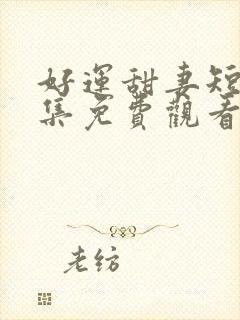 好運甜妻短
集免費觀看
老紡